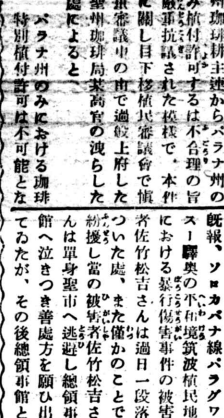 州珈琲耕主達からパラナ州の
み植付許可するは不合理の旨
嚴重抗議された模樣で、本件
に關し目下移植民審議會で愼
重審議中の由で過般上府した
聖州珈琲局某高官の洩らした
處によると、
パラナ州のみにおける珈琲
特別植付許可は不可能とな
既報、ソロカバナ線パラグ
スー驛奥の平和植民地
における暴行傷害事件の被害
者佐竹松吉さんは過日一段落
ついた處、また僅かのことで
紛擾し當の被害者佐竹松吉さ
んは單身聖市へ逃避し總領事
館へ泣きつき善處方を願ひ出
てゐたが、その後總領事館と